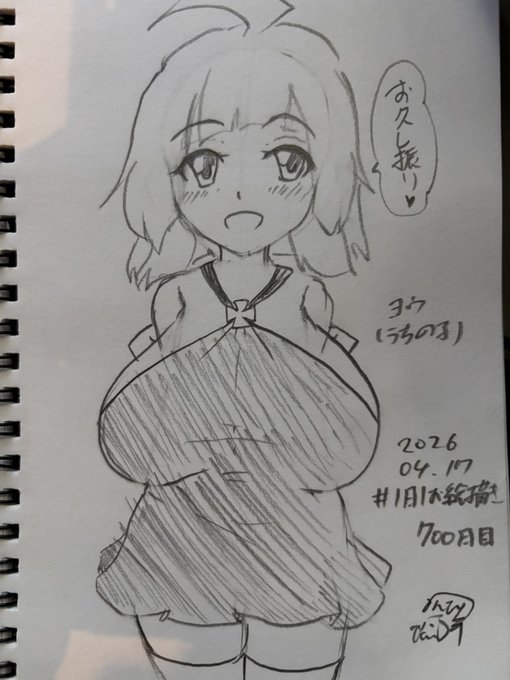 お久し振り♥
ヨウ
(うちの子)
2026
04.17
#1日1お絵描き
700日目